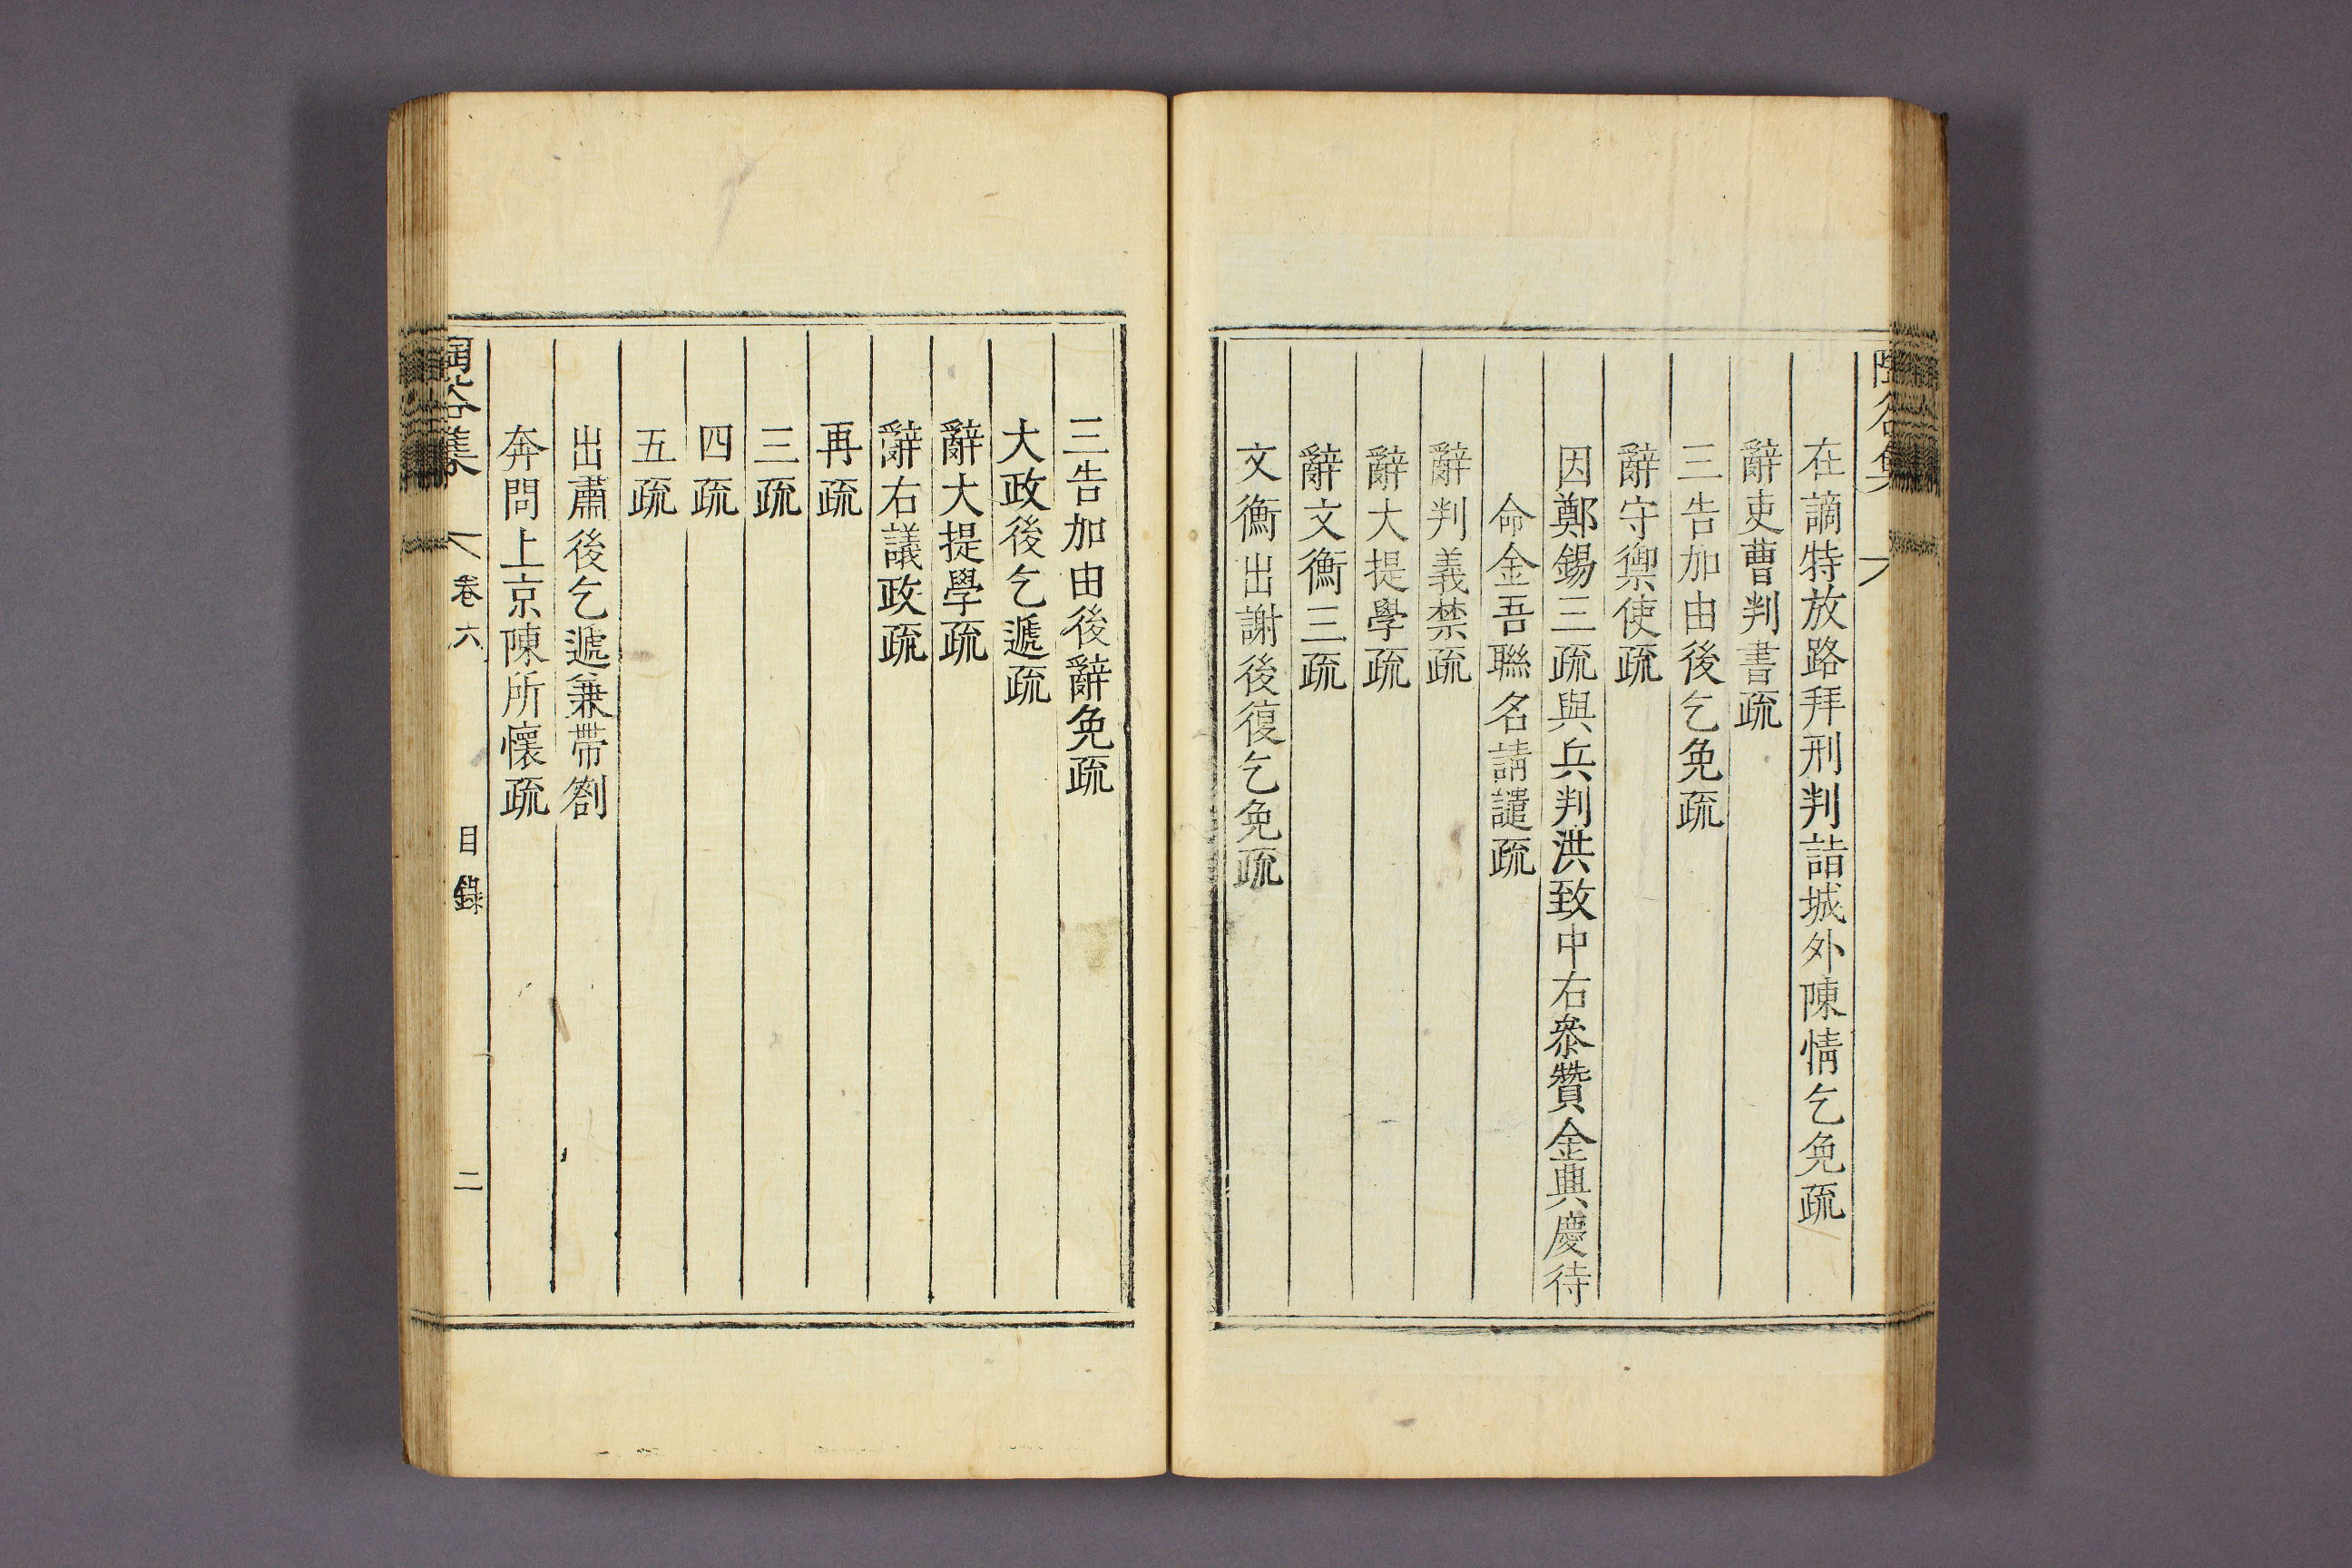 在謫特放路拜刑判詣城外陳情乞免疏
辭吏曹判書疏
三告加由後乞免疏
辭守禦使疏
因鄭錫三疏與兵判洪致中右叅贊金興慶待
命金吾聯名請譴疏
辭判義禁疏
辭大提學疏
辭文衡三疏
文衡出謝後復乞免疏
三告加由後辭免疏
大政後乞遞疏
辭大提學疏
辭右議政疏
再疏
三疏
四疏
五疏
出肅後乞遞兼帶劄
奔問上京陳所懷疏
陶谷集 卷六 目錄 二